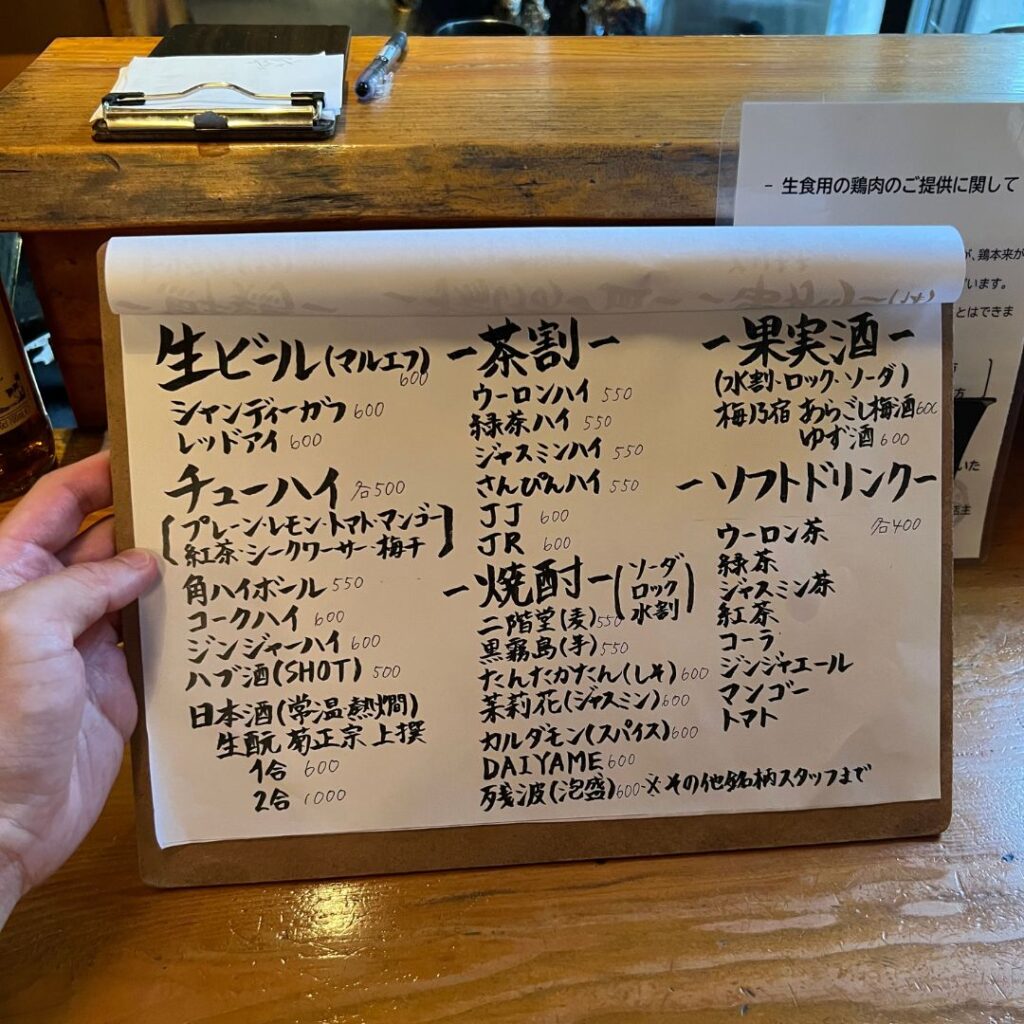 - 生食用の鶏肉のご提供に関して
が、鶏本来が
います。
とはできま
方
いた
店主
生ビール(マルエフ)
600
シャンディーガフ 600
レッドアイ 600
チューハイ 各500
プレーン・レモン・トマト・マンゴー
紅茶・シークワーサー・梅干
角ハイボール 550
コークハイ 600
ジンジャーハイ 600
ハブ酒(SHOT) 500
日本酒(常温・熱燗)
生酛 菊正宗 上撰
1合 600
2合 1000
-茶割-
ウーロンハイ 550
緑茶ハイ 550
ジャスミンハイ 550
さんぴんハイ 550
JJ 600
JR 600
-焼酎-
ソーダ
ロック
水割
二階堂(麦) 550
黒霧島(芋) 550
たんたかたん(しそ) 600
茉莉花(ジャスミン) 600
カルダモン(スパイス) 600
DAIYAME 600
残波(泡盛) 600 ※その他銘柄スタッフまで
-果実酒-
(水割・ロック・ソーダ)
梅乃宿 あらごし梅酒 600
ゆず酒 600
-ソフトドリンク-
各400
ウーロン茶
緑茶
ジャスミン茶
紅茶
コーラ
ジンジャエール
マンゴー
トマト